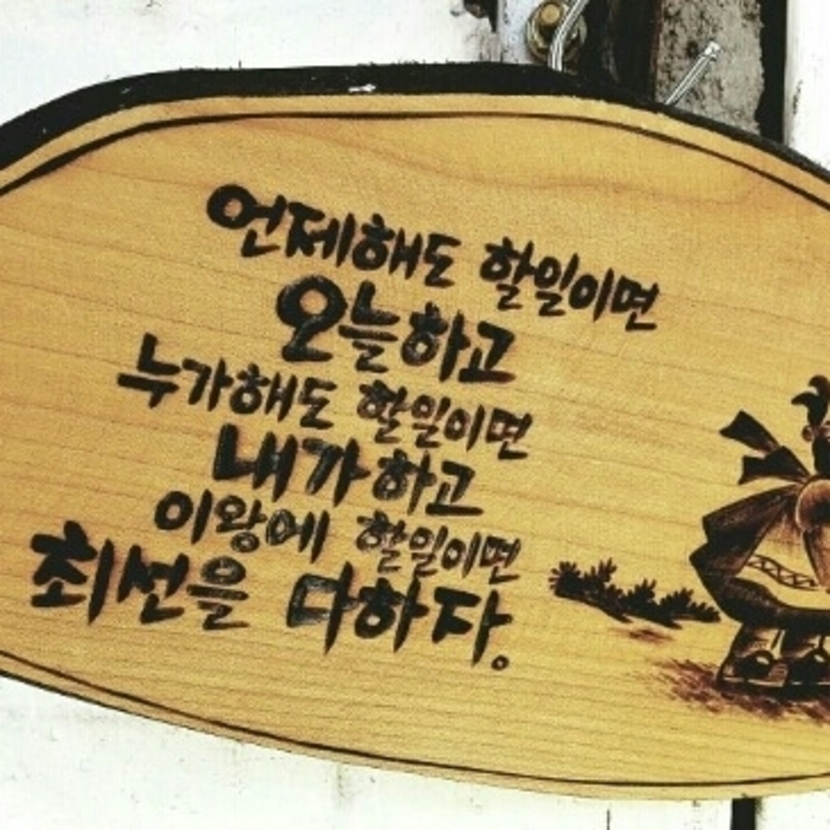 언제해도 할일이면
오늘하고
누가해도 할일이면
내가하고
이왕에 할일이면
최선을 다하자.